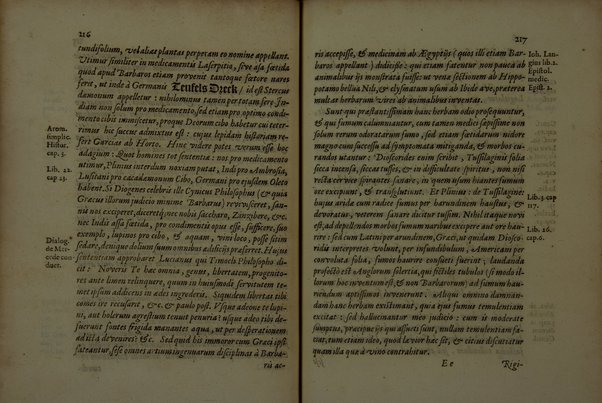 216
tundifolium, vel alias plantas perperam eo nomine appellant.
Utimur similiter in medicamentis Laserpitio, sive asa fœtida
quod apud Barbaros etiam provenit tantoque fœtore nares
ferit, ut inde à Germanis Teufels Dreck / id est Stercus
dæmonum appelletur: nihilominus tamen per totam fere In-
diam non solum pro medicamento, sed etiam pro optimo condi-
mento cibis immiscetur, proque Deorum cibo habetur cui teter-
rimus hic succus admixtus est: cujus lepidam historiam re-
fert Garcias ab Horto. Hinc videre potes verum esse hoc
adagium: Quot homines tot sententiæ: nos pro medicamento
utimur, Plinius interdum noxiam putat, Indi pro Ambrosia,
Lusitani pro cacademonum Cibo, Germani pro ejusdem Oleto
habent. Si Diogenes celebris ille Cynicus Philosophus (& quia
Græcus illorum judicio minime Barbarus) revivisceret, san-
niis nos exciperet, diceretq; nec nobis saccharo, Zinzibere, &c.
nec Indis assa fœtida, pro condimentis opus esse, sufficere, suo
exemplo, lupinos pro cibo, & aquam, vini loco, posse sitim
sedare, denique dolium suum omnibus ædificiis præferret. Hujus
sententiam approbaret Lucianus qui Timoclis Philosopho di-
cit: Noveris Te hac omnia, genus, libertatem, progenito-
res ante limen relinquere, quum in hujusmodi servitutem te-
met ipsum addicens in ædes ingredieris. Siquidem libertas tibi
comes ire recusarit, &c. & paulo post. Usque adeone te lupi-
ni, aut holerum agrestium tenuit penuria? usque adeo tibi de-
fuerant fontes frigida manantes aqua, ut per desperationem
ad ista devenires? &c. Sed quid his immoror cum Græci ipsi
fateantur, sese omnes artium ingenuarum disciplinas à Barba-
ris ac-
Arom.
simplic.
Histor.
cap. 5.
Lib. 22.
cap 23.
Dialog.
de Mer-
cede con-
duct.
217
ris accepisse, & medicinam ab Ægyptiis (quos illi etiam Bar-
baros appellant) didicisse: qui etiam fatentur non pauca ab
animalibus iis monstrata fuisse: ut venæ sectionem ab Hippo-
potamo bellua Nili, & clysmatum usum ab Ibide ave, præterea
multat herbarum vires ab animalibus inventas.
Sunt qui præstantissimam hanc herbam odio prosequuntur,
& quamvis fumum calumniantur, cum tamen medici sæpissime non
solum rerum odoratarum fumo, sed etiam fœtidarum nidore
magno cum successu ad symptomata mitiganda, & morbos cu-
randos utantur: Dioscorides enim scribit, Tussilaginis folia
sicca incensa, siccas tusses, & in difficultate spiritus, non nisi
recta cervice spirantes sanare, in quem usum hianter fumum
ore excipiunt, & transglutiunt. Et Plinius: de Tussilagine:
hujus aridæ cum radice fumus per harundinem haustus, &
devoratus, veterem sanare dicitur tussim. Nihil itaque novi
est, ad depellendos morbos fumum naribus excipere aut ore hau-
rire: sed cum Latini per arundinem, Græci, ut quidam Diosco-
ridis interpretes volunt, per infundibulum, Americani per
convoluta folia, fumum haurire consueti fuerint; laudanda
profecto est Anglorum solertia, qui fictiles tubulos (si modo il-
lorum hoc inventum est, & non Barbarorum) ad fumum hau-
riendum aptissimos invenerunt. Aliqui omnino damnan-
dam hanc herbam existimant, quia ejus fumus temulentiam
excitat: sed hallucinantur meo judicio: cum is moderate
sumptus, præcipue iis qui assueti sunt, nullam temulentiam fa-
ciat, tum etiam ideo, quod leviter hac sit, & citius discutiatur
quam illa quæ à vino contrahitur.
E e
Rigi-
Ioh. Lan-
gius lib. 2.
Epistol.
medic.
Epist. 2.
Lib. 3. cap
117.
Lib. 26.
cap. 6.